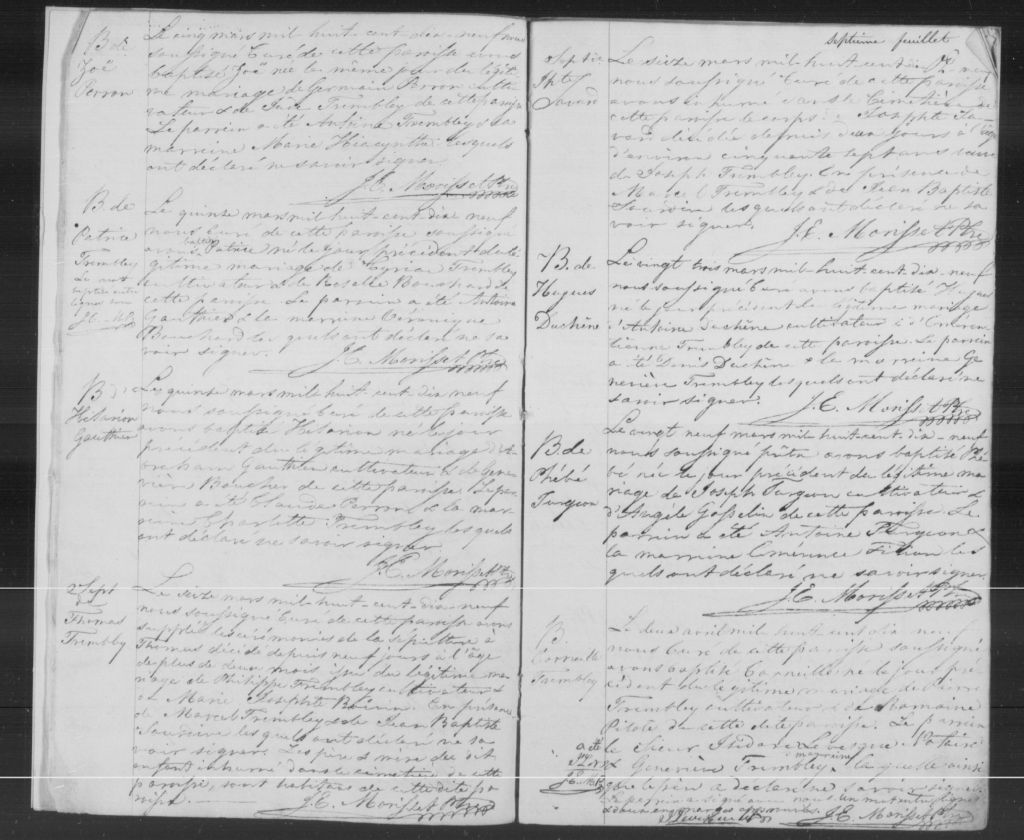 B. de
Zoë
Perron
Le cinq mars mil huit-cent-dix-neuf nous
soussigné Curé de cette paroisse avons
baptisé Zoë née le même jour du légiti
me mariage de Germain Perron culti
vateur & de Tremblay de cette paroisse
Le parrain a été Tremblay & la
marraine Marie Hiacynthe lesquels
ont déclaré ne savoir signer
J. E. Morisset Ptre
B. de
Patrice
Trembley
Le mot
baptisé entre
ligne bon
Le quinse mars mil huit-cent dix neuf
nous Curé de cette paroisse soussigné
avons baptisé Patrice né le jour précédent du lé
gitime mariage de Trembley
cultivateur & de Roselie Bouchard de
cette paroisse. Le parrain a été Antoine
Gauthier & la marraine Véronique
Bouchard lesquels ont déclaré ne sa
voir signer.
J. E. Morisset Ptre
B. de
Hilarion
Gauthier
Le quinse mars mil huit-cent-dix neuf
nous soussigné Curé de cette paroisse
avons baptisé Hilarion né le jour
précédent du légitime mariage d'A
braham Gauthier cultivateur & de Gene
viève Boucher de cette paroisse Le par
rain a été Claude Perron & la mar
raine Charlotte Trembley lesquels
ont déclaré ne savoir signer
J. E. Morisset Ptre
2 Sept
de
Thomas
Trembley
Le seize mars mil huit-cent-dix-neuf
nous soussigné Curé de cette paroisse avons
suppléé les cérémonies de la sépulture à
Thomas décédé depuis neuf jours à l'âge
de plus de deux mois issu du légitime ma
riage de Philippe Trembley cultivateur &
de Marie Josephte En présence
de Marcel Trembley & de Jean Baptiste
lesquels ont déclaré ne sa
voir signer. Les père & mère du dit
enfant inhumé dans le cimetière de cette
paroisse, sont habitans de cette dite pa
roisse.
J. E. Morisset Ptre
Septième feuillet
Jphte
Savard
Le seize mars mil huit cent-dix neuf
nous soussigné Curé de cette paroisse
avons inhumé dans le Cimetière de
cette paroisse le corps de Josephte Sa
vard décédée depuis deux jours à l'âge
d'environ cinquante sept ans
de Joseph Trembley. En présence de
Marcel Trembley & de Jean Baptiste
lesquels ont déclaré ne sa
voir signer.
J. E. Morisset Ptre
B. de
Hugues
Duchêne
Le vingt trois mars mil huit-cent-dix-neuf
nous soussigné Curé avons baptisé Hugues
né le jour précédent du légitime mariage
d'Antoine Duchêne cultivateur & d'Emeren
tienne Trembley de cette paroisse. Le parrain
a été Denis Duchêne & la marraine Ge
neviève Trembley lesquels ont déclaré ne
savoir signer.
J. E. Morisset Ptre
B. de
Phébé
Turgeon
Le vingt neuf mars mil huit-cent-dix-neuf
nous soussigné prêtre avons baptisé Phé
bé née le jour précédent du légitime ma
riage de Joseph Turgeon cultivateur &
d'Angèle Gosselin de cette paroisse. Le
parrain a été Antoine Turgeon &
la marraine Emerence les
quels ont déclaré ne savoir signer.
J. E. Morisset Ptre
B.
Corneille
Trembley
Le deux avril mil huit cent dix neuf
nous Curé de cette paroisse soussigné
avons baptisé Corneille né le jour pré
cédent du légitime mariage de Pierre
Trembley cultivateur & de Romaine
Pilote de cette dite paroisse. Le parrain
a été le Sieur Isidore Levesque Notaire
& la marraine Geneviève Trembley laquelle ainsi
que le père a déclaré ne savoir signer
Le parrain a signé avec nous
J. E. Morisset Ptre